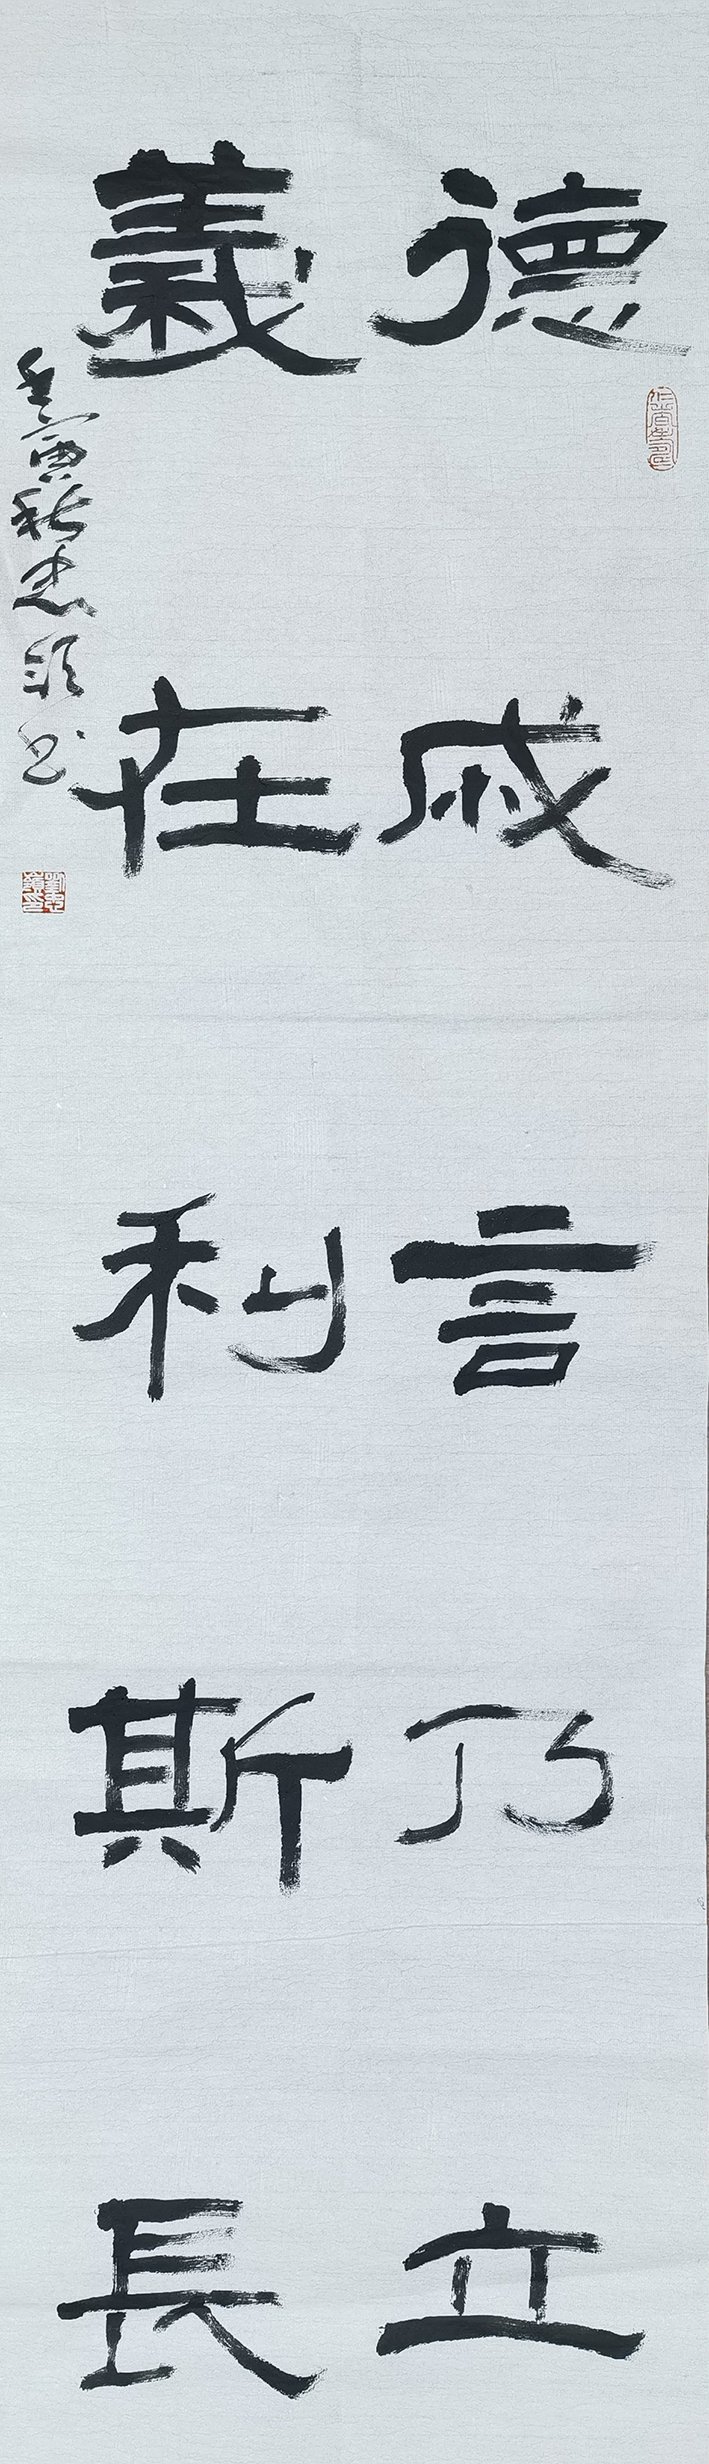 德成言乃立
義在利斯長
壬寅秋忠书